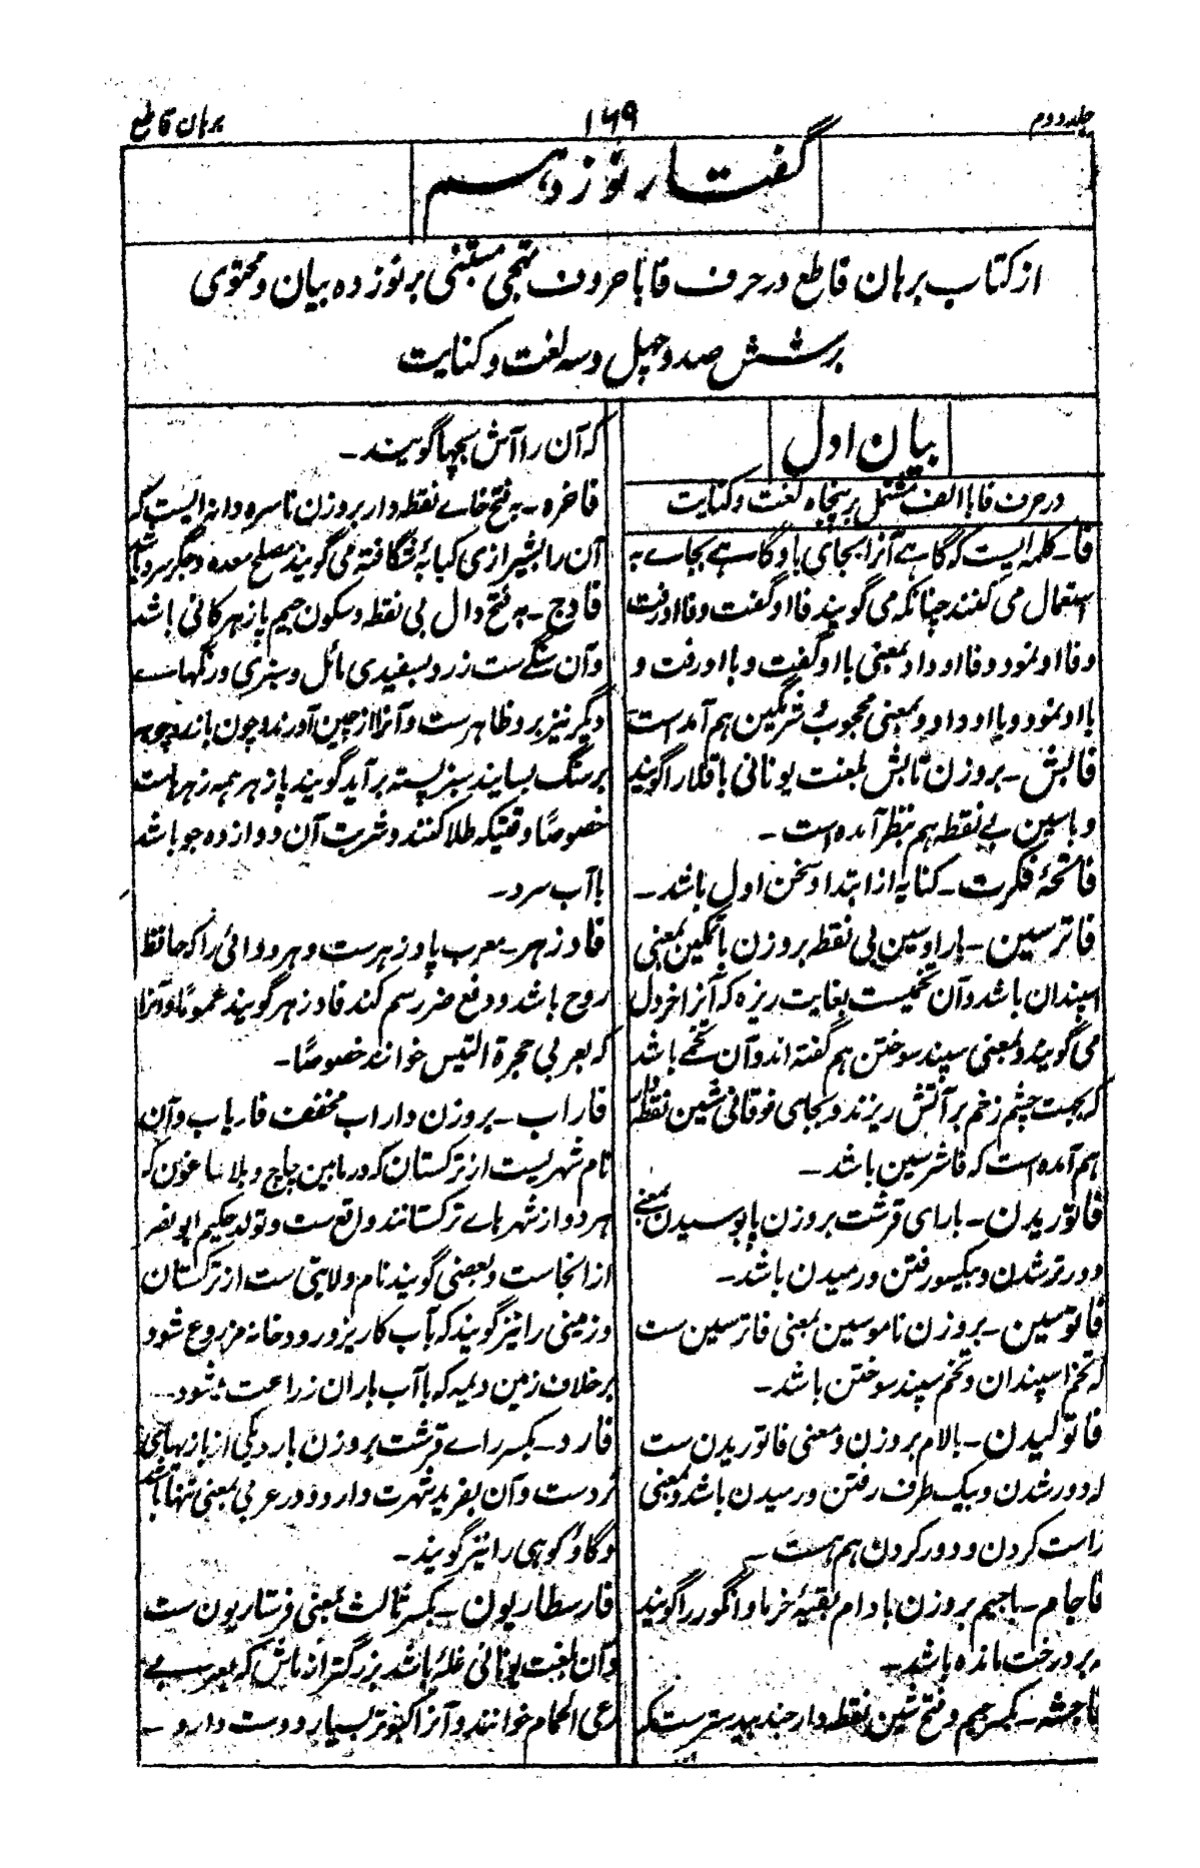 جلد دوم
۱۶۹
برهان قاطع
گفتار نوزدهم
از کتاب برهان قاطع در حرف فا با حروف تهجی مبتنی بر نوزده بیان و محتوی
بر شش صد و چهل و سه لغت و کنایت
بیان اول
در حرف فا با الف مشتمل بر پنجاه لغت و کنایت
فا ـ کلمه ایست که گاهے آنرا بجای با و گاهے بجاے به
استعمال می کنند چنانکه می گویند فا او گفت و فا او رفت
و فا او نمود و فا او داد بمعنی با او گفت و با او رفت و
با او نمود و با او داد و بمعنی محجوب و شرمگین هم آمده است
فابش ـ بروزن تابش بلغت یونانی باقلا را گویند
و با سین بے نقطه هم بنظر آمده است ـ
فاتحهٔ فکرت ـ کنایه از ابتدا و سخن اول باشد ـ
فاترسین ـ با را و سین بی نقطه بروزن با تمکین بمعنی
اسپندان باشد و آن تخمیست بغایت ریزه که آنرا خردل
می گویند و بمعنی سپند سوختن هم گفته اند و آن تخمے باشد
که بجهت چشم زخم بر آتش ریزند و بجای فوقانی شین نقطه دار
هم آمده است که فاشرسین باشد ـ
فاتوریدن ـ با رای قرشت بروزن پا بوسیدن بمعنے
دورتر شدن و بیکسو رفتن و رمیدن باشد ـ
فاتوسین ـ بروزن ناموسین بمعنی فاترسین ست
که تخم اسپندان و تخم سپند سوختن باشد ـ
فاتولیدن ـ با لام بروزن و معنی فاتوریدن ست
که دور شدن و بیک طرف رفتن و رمیدن باشد و بمعنی
راست کردن و دور کردن هم هست ـ
فاجام ـ با جیم بروزن بادام بقیهٔ خرما و انگور را گویند
که بر درخت مانده باشد ـ
فاجشه ـ بکسر جیم و فتح شین نقطه دار جند بیدستر ست
که آن را آش بچها گویند ـ
فاخره ـ به فتح خاے نقطه دار بروزن ناسره دانه ایست که
آن را بشیرازی کبابهٔ شگافته می گویند مصلح معده و جگر سرد باشد
فادج ـ به فتح دال بی نقطه و سکون جیم پازهر کانی باشد
و آن سنگے ست زرد بسفیدی مائل و سبزی و رنگهاے
دیگر نیز برو ظاهرست و آنرا از چین آورند و چون با زردچوبه
بر سنگ بسایند سبز پسته برآید گویند پازهر همه زهرهاست
خصوصاً وقتیکه طلا کنند و شربت آن دوازده جو باشد
با آب سرد ـ
فادزهر ـ معرب پادزهرست و هر دوائی را که حافظ
روح باشد و دفع ضرر سم کند فادزهر گویند عموماً و آنرا
که بعربی حجرة التیس خوانند خصوصاً ـ
فاراب ـ بروزن داراب مخفف فاریاب و آن
نام شهریست از ترکستان که در مابین چاچ و بلاساغون که
هر دو از شهرهاے ترکستانند واقع ست و تولد حکیم ابونصر
از انجاست و بعضی گویند نام ولایتی ست از ترکستان
و زمینی را نیز گویند که بآب کاریز و رودخانه مزروع شود
بر خلاف زمین دیمه که با آب باران زراعت شود ـ
فارد ـ بکسر راے قرشت بروزن بارد یکی از بازیهای
نردست و آن بفرید شهرت دارد و در عربی بمعنی تنها باشد
و گاو کوهی را نیز گویند ـ
فارسطاریون ـ بکسر ثالث بمعنی فرستاریون ست
و آن بلغت یونانی غله باشد بزرگتر از ماش که بعربے
رعی الحمام خوانند و آنرا کبوتر بسیار دوست دارد ـ